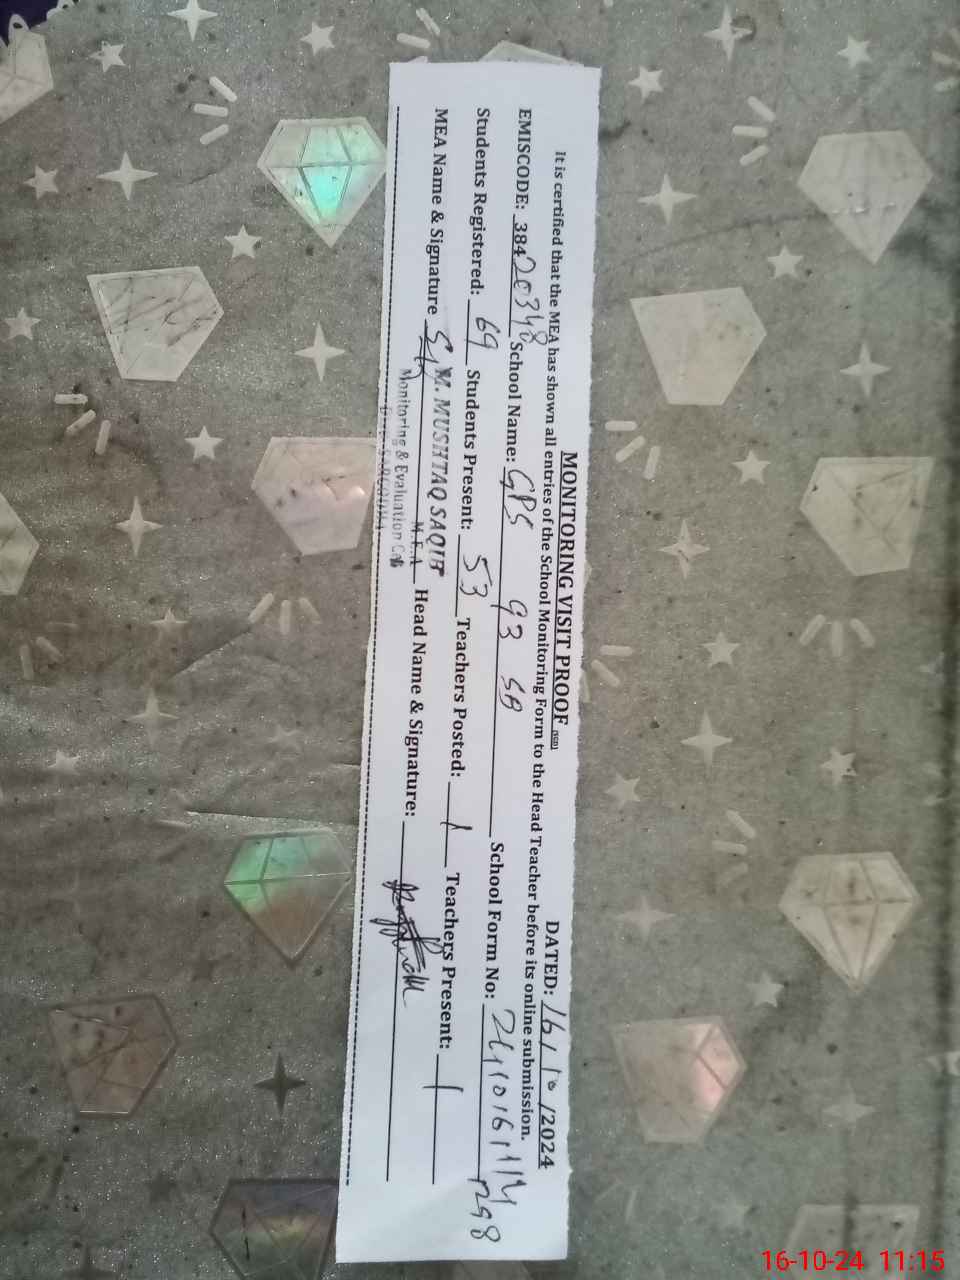 MONITORING VISIT PROOF (SGD) DATED: 16/10/2024
It is certified that the MEA has shown all entries of the School Monitoring Form to the Head Teacher before its online submission.
EMISCODE: 38420348 School Name: GPS 93 SB School Form No:
Students Registered: 69 Students Present: 53 Teachers Posted: 1 Teachers Present: 1
MEA Name & Signature M. MUSHTAQ SAQIB Head Name & Signature:
M.E.A
Monitoring & Evaluation Cell
SARGODHA
16-10-24 11:15